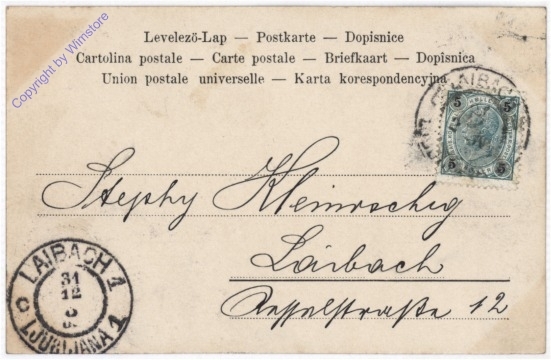 Levelezö-Lap — Postkarte — Dopisnice
Cartolina postale — Carte postale — Briefkaart — Dopisnica
Union postale universelle — Karta korespondencyjna
Copyright by Winstore
LAIBACH
5 5
5 5
Stephy Kleinoscheg
Laibach
12
LAIBACH 1
31
12
LJUBLJANA 1